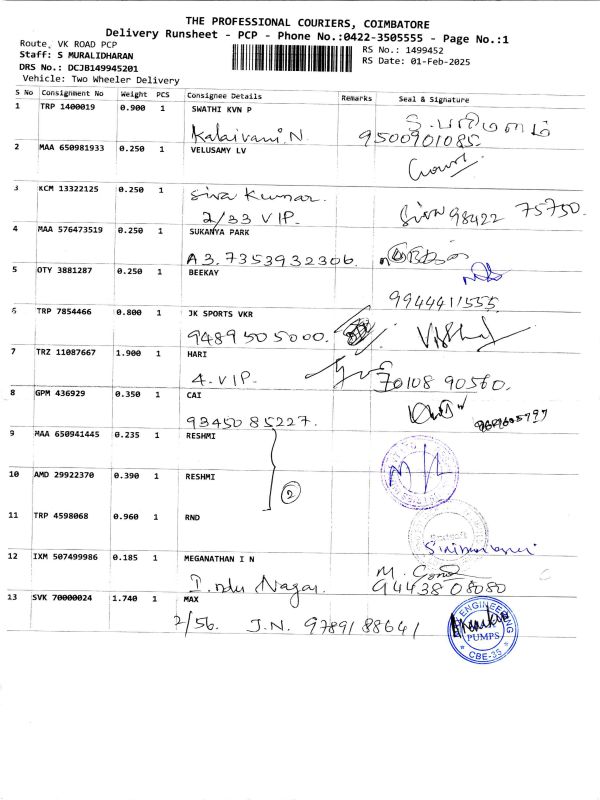 THE PROFESSIONAL COURIERS, COIMBATORE
Delivery Runsheet - PCP - Phone No.:0422-3505555 - Page No.:1
Route, VK ROAD PCP
Staff: S MURALIDHARAN
DRS No.: DCJB149945201
Vehicle: Two Wheeler Delivery
RS No.: 1499452
RS Date: 01-Feb-2025
S No Consignment No Weight PCS Consignee Details Remarks Seal & Signature
1 TRP 1400019 0.900 1 SWATHI KVN P
Kalaivani N. 9500901085
2 MAA 650981933 0.250 1 VELUSAMY LV
3 KCM 13322125 0.250 1 Siva Kumar.
2/33 VIP. Siva 98422 75750
4 MAA 576473519 0.250 1 SUKANYA PARK
A3. 7353932306
5 OTY 3881287 0.250 1 BEEKAY
9944411555
6 TRP 7854466 0.800 1 JK SPORTS VKR
9489505000.
7 TRZ 11087667 1.900 1 HARI
4. VIP. 70108 90560.
8 GPM 436929 0.350 1 CAI
93450 85227.
9 MAA 650941445 0.235 1 RESHMI
10 AMD 29922370 0.390 1 RESHMI
2
11 TRP 4598068 0.960 1 RND
12 IXM 507499986 0.185 1 MEGANATHAN I N
Indu Nagar. 94438 08080
13 SVK 70000024 1.740 1 MAX
2/56. J.N. 9789188641
ENGINEERING
PUMPS
CBE-35